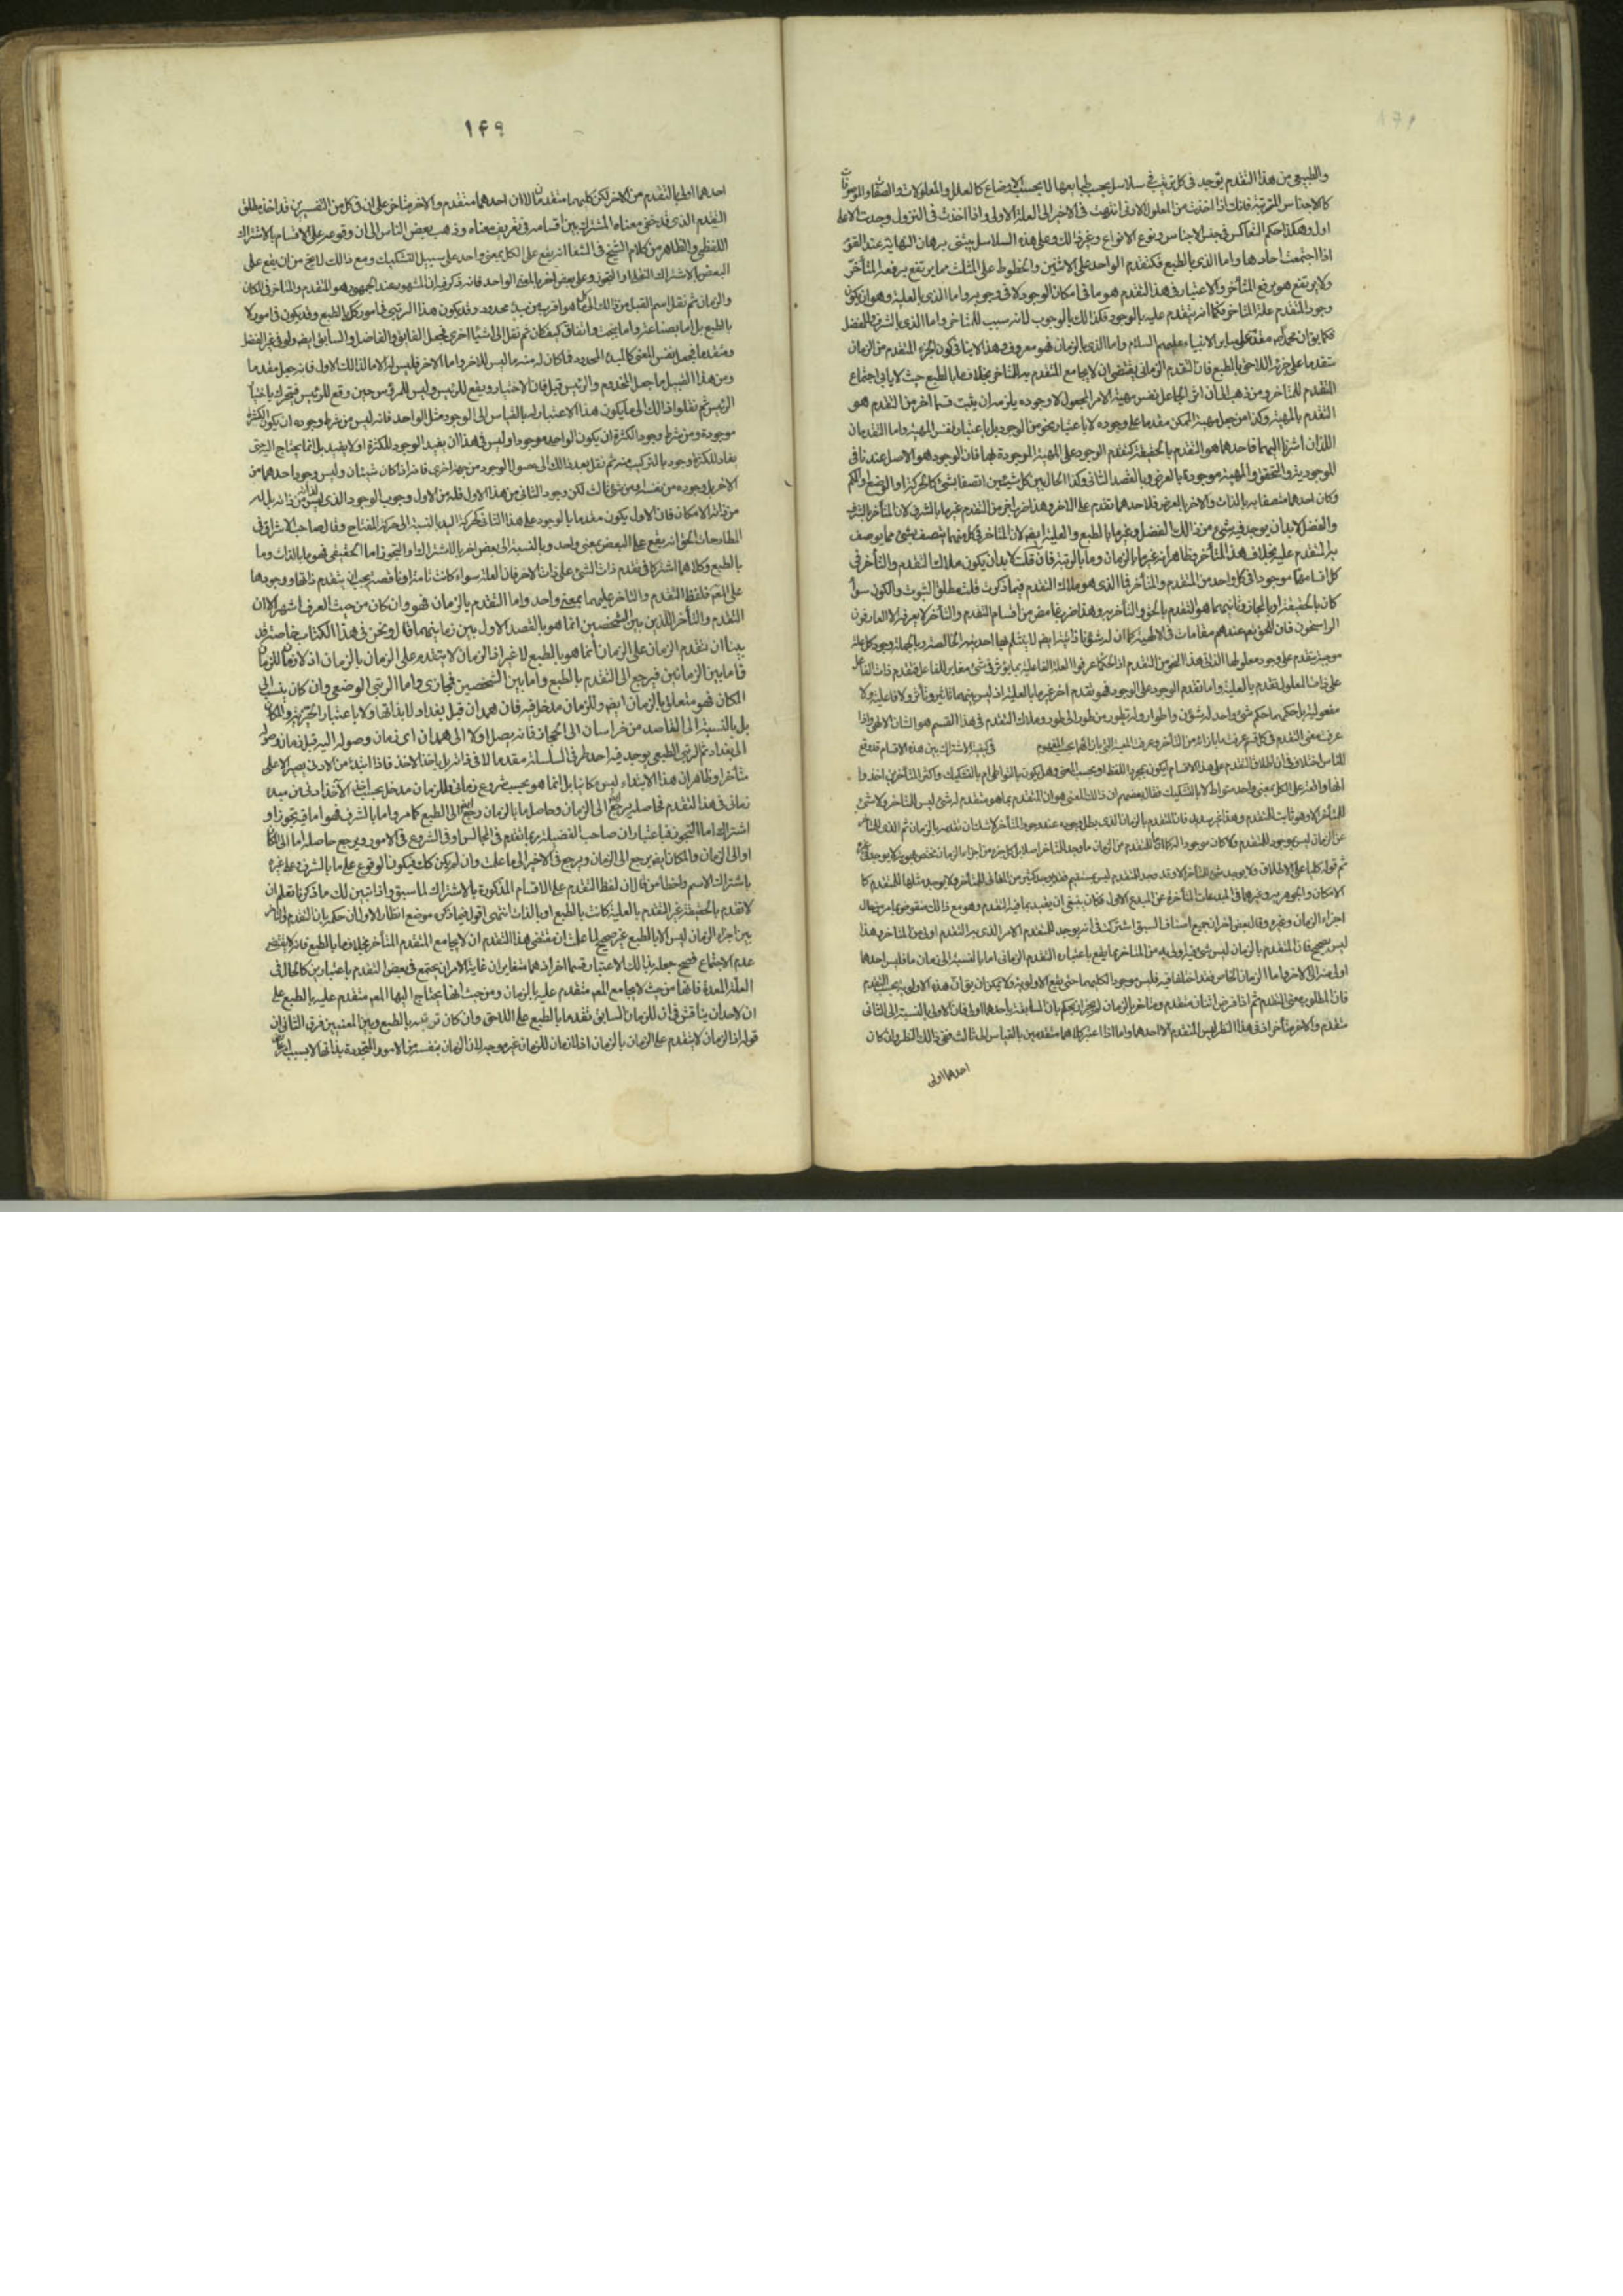 والطبيعي من هذا التقدم يوجد في كل ترتيب في سلاسل بحسب طبايعها لا بحسب الاوضاع كالعلل والمعلولات والصفات والموصوفات
كالاجناس المترتبة فانك اذا اخذت من المعلول الادنى انتهيت في الاخير الى العلة الاولى واذا اخذت في النزول وجدت الاعلى
اول وهكذا حكم التعاكس في جنس الاجناس ونوع الانواع وغير ذلك وعلى هذه السلاسل يبتنى برهان النهاية عند القوم
اذا اجتمعت احادها واما الذي بالطبع فكتقدم الواحد على الاثنين والخطوط على المثلث مما يرتفع برفعه المتأخر
ولا يرتفع هو برفع المتأخر والاعتبار في هذا التقدم هو ما في امكان الوجود لا في وجوبه واما الذي بالعلية وهو ان يكون
وجود المتقدم علة المتاخر فكما انه يتقدم عليه بالوجود فكذلك بالوجوب لانه سبب للمتاخر واما الذي بالشرف والفضل
فكما يق ان محمدا مقدم على ساير الانبياء عليهم السلام واما الذي بالزمان فهو معروف وهذا لا ينافي كون الجزء المتقدم من الزمان
متقدما على جزئه اللاحق بالطبع فان التقدم الزماني يقتضي ان لا يجامع المتقدم به المتاخر بخلاف ما بالطبع حيث لا يابى اجتماع
المتقدم للمتاخر ومن ذهب الى ان اثر الجاعل نفس مهية الامر المجعول لا وجوده يلزمه ان يثبت قسما اخر من التقدم هو
التقدم بالمهية وكذا من جعل مهية الممكن مقدما على وجوده لا باعتبار نحو من الوجود بل باعتبار نفس المهية واما التقدمان
اللذان اشرنا اليهما فاحدهما هو التقدم بالحقيقة كتقدم الوجود على المهية الموجودة بها فان الوجود هو الاصل عندنا في
الموجودية والتحقق والمهية موجودة به بالعرض وبالقصد الثاني وكذا الحال بين كل شيئين اتصفا بشئ كالحركة او الوضع او الكم
وكان احدهما متصفا به بالذات والاخر بالعرض فلاحدهما تقدم على الاخر وهذا ضرب اخر من التقدم غير ما بالشرف لان المتأخر بالشرف
والفضل لابد ان يوجد فيه شئ من ذلك الفضل وغير ما بالطبع والعلية ايضا لان المتاخر في كل منهما يتصف بشئ مما يوصف
به المتقدم عليه بخلاف هذا المتأخر وظاهر انه غير ما بالزمان وما بالرتبة فان قلت لابد ان يكون ملاك التقدم والتأخر في
كل اقسامهما موجودا في كل واحد من المتقدم والمتأخر فما الذي هو ملاك التقدم فيما ذكرت قلت مطلق الثبوت والكون سواء
كان بالحقيقة او بالمجاز وثانيهما هو التقدم بالحق والتأخر به وهذا ضرب غامض من اقسام التقدم والتأخر لا يعرفه الا العارفون
الراسخون فان للحق تع عندهم مقامات في الالهية كما ان له شؤنا ذاتية ايضا لا ينثلم بها احديته الخالصة وبالجملة وجود كل علة
موجبة يتقدم على وجود معلولها الذاتي هذا النحو من التقدم اذ الحكماء عرفوا العلة الفاعلية بما يؤثر في شئ مغاير للفاعل فتقدم ذات الفاعل
على ذات المعلول تقدم بالعلية واما تقدم الوجود على الوجود فهو تقدم اخر غير ما بالعلية اذ ليس بينهما تاثير وتأثر ولا فاعلية ولا
مفعولية بل حكمهما حكم شئ واحد له شؤن واطوار وله تطور من طور الى طور وملاك التقدم في هذا القسم هو الشان الالهي واذا
عرفت معنى التقدم في كل قسم عرفت ما بازائه من التأخر وعرفت المعية التي بازائهما بحسب المفهوم في كيفية الاشتراك بين هذه الاقسام قد وقع
للناس اختلاف في ان اطلاق التقدم على هذه الاقسام ايكون بمجرد اللفظ او بحسب المعنى وهل يكون بالتواطؤ ام بالتشكيك واكثر المتأخرين اخذوا
انها واقعة على الكل بمعنى واحد متواط لا بالتشكيك فقال بعضهم ان ذلك المعنى هو ان المتقدم بما هو متقدم له شئ ليس للمتاخر ولا شئ
للمتأخر الا وهو ثابت للمتقدم وهذا غير سديد فان المتقدم بالزمان الذي بطل وجوده عند وجود المتأخر لا شك ان تقدمه بالزمان ثم الذي للمتأخر
من الزمان ليس بوجود للمتقدم ولا كان موجودا له كما ان ما للمتقدم من الزمان ما وجد للمتاخر اصلا بل كل جزء من اجزاء الزمان مختص بهوية لا يوجد لغيره
ثم قوله كليا على الاطلاق ولا يوجد شئ للمتأخر الا وقد وجد للمتقدم ليس بمستقيم فقد يوجد كثير من المعاني للمتأخر ولا يوجد مثلها للمتقدم كا
الامكان والجوهرية وغيرها في المبدعات المتأخرة عن المبدع الاول فكان ينبغي ان يقيد بما فيه التقدم وهو مع ذلك منقوض بما مر من حال
اجزاء الزمان وغيره وقال بعض اخر ان جميع اصناف السبق اشترك في انه يوجد للمتقدم الامر الذي به التقدم اولى من المتاخر وهذا
ليس بصحيح فان المتقدم بالزمان ليس شئ فيه اولى به من المتاخر مما يقع باعتباره التقدم الزماني اما بالنسبة الى زمان ما فليس احدهما
اولى منه الى الاخر واما الزمان الخاص فقد اختلفا فيه فليس موجودا لكليهما حتى يقع الاولوية ولا يمكن ان يق ان هذه الاولوية بحسب التقدم
فان المطلوب معنى التقدم ثم اذا فرض اثنان متقدم ومتاخر بالزمان لم يجز ان يحكم بان السابقية باحدهما اولى فان الاولى بالنسبة الى الثاني
متقدم والاخر متأخر اذ في هذا النظر ليس المتقدم الا احدهما واما اذا اعتبر كلاهما متقدمين بالقياس الى ثالث فنح ذلك النظر وان كان
احدهما اولى
١٤٩
احدهما اولى بالتقدم من الاخر لكن كليهما متقدمان لا ان احدهما متقدم والاخر متاخر على ان في كل من التفسيرين قد اخذ مطلق
التقدم الذي قد خفي معناه المشترك بين اقسامه في تعريف معناه وذهب بعض الناس الى ان وقوعه على الاقسام بالاشتراك
اللفظي والظاهر من كلام الشيخ في الشفا انه يقع على الكل بمعنى واحد على سبيل التشكيك ومع ذلك لا يخ من ان يقع على
البعض بالاشتراك النقل او التجوز وعلى بعض اخر بالمعنى الواحد فانه ذكر فيه ان المشهور عند الجمهور هو المتقدم والمتاخر في المكان
والزمان ثم نقل اسم القبل من ذلك الى كل ما هو اقرب من مبدء محدود وقد يكون هذا الرتبي في امور كل بالطبع وقد يكون في امور لا
بالطبع بل اما بصناعة واما ببخت واتفاق كيف كان ثم نقل الى اشياء اخرى فجعل الفايق والفاضل والسابق ايضا ولو في غير الفضل
متقدما فجعل نفس المعنى كالمبدء المحدود فما كان له منه ما ليس للاخر واما الاخر فليس له الا ما لذلك الاول فانه جعل مقدما
ومن هذا القبيل ما جعل المخدوم والرئيس قبل فان الاختيار يقع للرئيس وليس للمرؤس وحين وقع للرئيس فيتحرك باختيار
الرئيس ثم نقلوا ذلك الى ما يكون هذا الاعتبار له بالقياس الى الوجود مثل الواحد فانه ليس من شرط وجوده ان يكون الكثرة
موجودة ومن شرط وجود الكثرة ان يكون الواحد موجودا وليس في هذا ان يفيد الوجود للكثرة او لا يفيد بل انما يحتاج اليه حتى
يفاد للكثرة وجود بالتركيب منه ثم نقل بعد ذلك الى حصول الوجود من جهة اخرى فانه اذا كان شيئان وليس وجود احدهما من
الاخر بل وجوده من نفسه او من شئ ثالث لكن وجود الثاني من هذا الاول فله من الاول وجوب الوجود الذي ليس له لذاته من ذاته بل له
من ذاته الامكان فان الاول يكون مقدما بالوجود على هذا الثاني كحركة اليد بالنسبة الى حركة المفتاح وقال صاحب الاشراق في
المطارحات الحق انه يقع على البعض بمعنى واحد وبالنسبة الى بعض اخر بالاشتراك او التجوز اما الحقيقي فهو ما بالذات وما
بالطبع وكلاهما اشتركا في تقدم ذات الشئ على ذات الاخر فان العلة سواء كانت تامة او ناقصة يجب ان يتقدم ذاتها ووجودها
على المعلول فلفظ التقدم والتاخر عليهما بمعنى واحد واما التقدم بالزمان فهو وان كان من حيث العرف اشهر الا ان
التقدم والتأخر اللذين بين الشخصين انما هو بالقصد الاول بين زمانيهما قال ونحن في هذا الكتاب خاصة قد
بينا ان تقدم الزمان على الزمان انما هو بالطبع لا غير اذ الزمان لا يتقدم على الزمان بالزمان اذ لا زمان للزمان
فما بين الزمانين فيرجع الى التقدم بالطبع واما بين الشخصين فمجازي واما الرتبي الوضعي وان كان ينسب الى
المكان فهو متعلق بالزمان ايضا وللزمان مدخل فيه فان همدان قبل بغداد لا بذاتها ولا باعتبار الحيز والمكان
بل بالنسبة الى القاصد من خراسان الى الحجاز فانه يصل اولا الى همدان اى زمان وصوله اليه قبل زمان وصوله
الى بغداد ثم الرتبي الطبيعي يوجد فيه احد طرفي السلسلة مقدما لا في ذاته بل باخذ الاخذ فاذا ابتدء من الادنى يصير الاعلى
متأخرا وظاهر ان هذا الابتداء ليس مكانيا بل انما هو بحسب شروع زماني فللزمان مدخل بحسب اخذ الاخذ من مبدء
زماني في هذا التقدم فحاصله يرجع الى الزمان وحاصل ما بالزمان رجع الى الطبع كما مر واما ما بالشرف فهو اما فيه تجوز او
اشتراك اما التجوز فباعتبار ان صاحب الفضيلة ربما يقدم في المجالس او في الشروع في الامور ويرجع حاصله اما الى المكان
او الى الزمان والمكان ايضا يرجع الى الزمان ويرجع في الاخير الى ما علمت وان لم يكن كذلك فيكون الوقوع على ما بالشرف وعلى غيره
باشتراك الاسم واخطأ من قال ان لفظ التقدم على الاقسام المذكورة بالاشتراك لما سبق واذا تبين لك ما ذكرنا تعلم ان
لا تقدم بالحقيقة غير التقدم بالعلية كانت بالطبع او بالذات انتهى اقول فيما ذكره موضع انظار الاول ان حكمه بان التقدم والتأخر
بين اجزاء الزمان ليس الا بالطبع غير صحيح لما علمت ان مقتضى هذا التقدم ان لا يجامع المتقدم المتأخر بخلاف ما بالطبع فانه لا يقتضي
عدم الاجتماع فصح جعله بذلك الاعتبار قسما اخر اذ هما متغايران غاية الامر ان يجتمع في بعض التقدم باعتبارين كالحال في
العلة المعدة فانها من حيث لا يجامع المعلول متقدم عليه بالزمان ومن حيث انها يحتاج اليها المعلول متقدم عليه بالطبع على
ان لاحد ان يناقش في ان للزمان السابق تقدما بالطبع على اللاحق وان كان توقفه بالطبع وبين المعنيين فرق الثاني ان
قوله اذ الزمان لا يتقدم على الزمان بالزمان اذ لا زمان للزمان غير موجه لان الزمان بنفسه من الامور المتجددة بذاتها لا بسبب امر